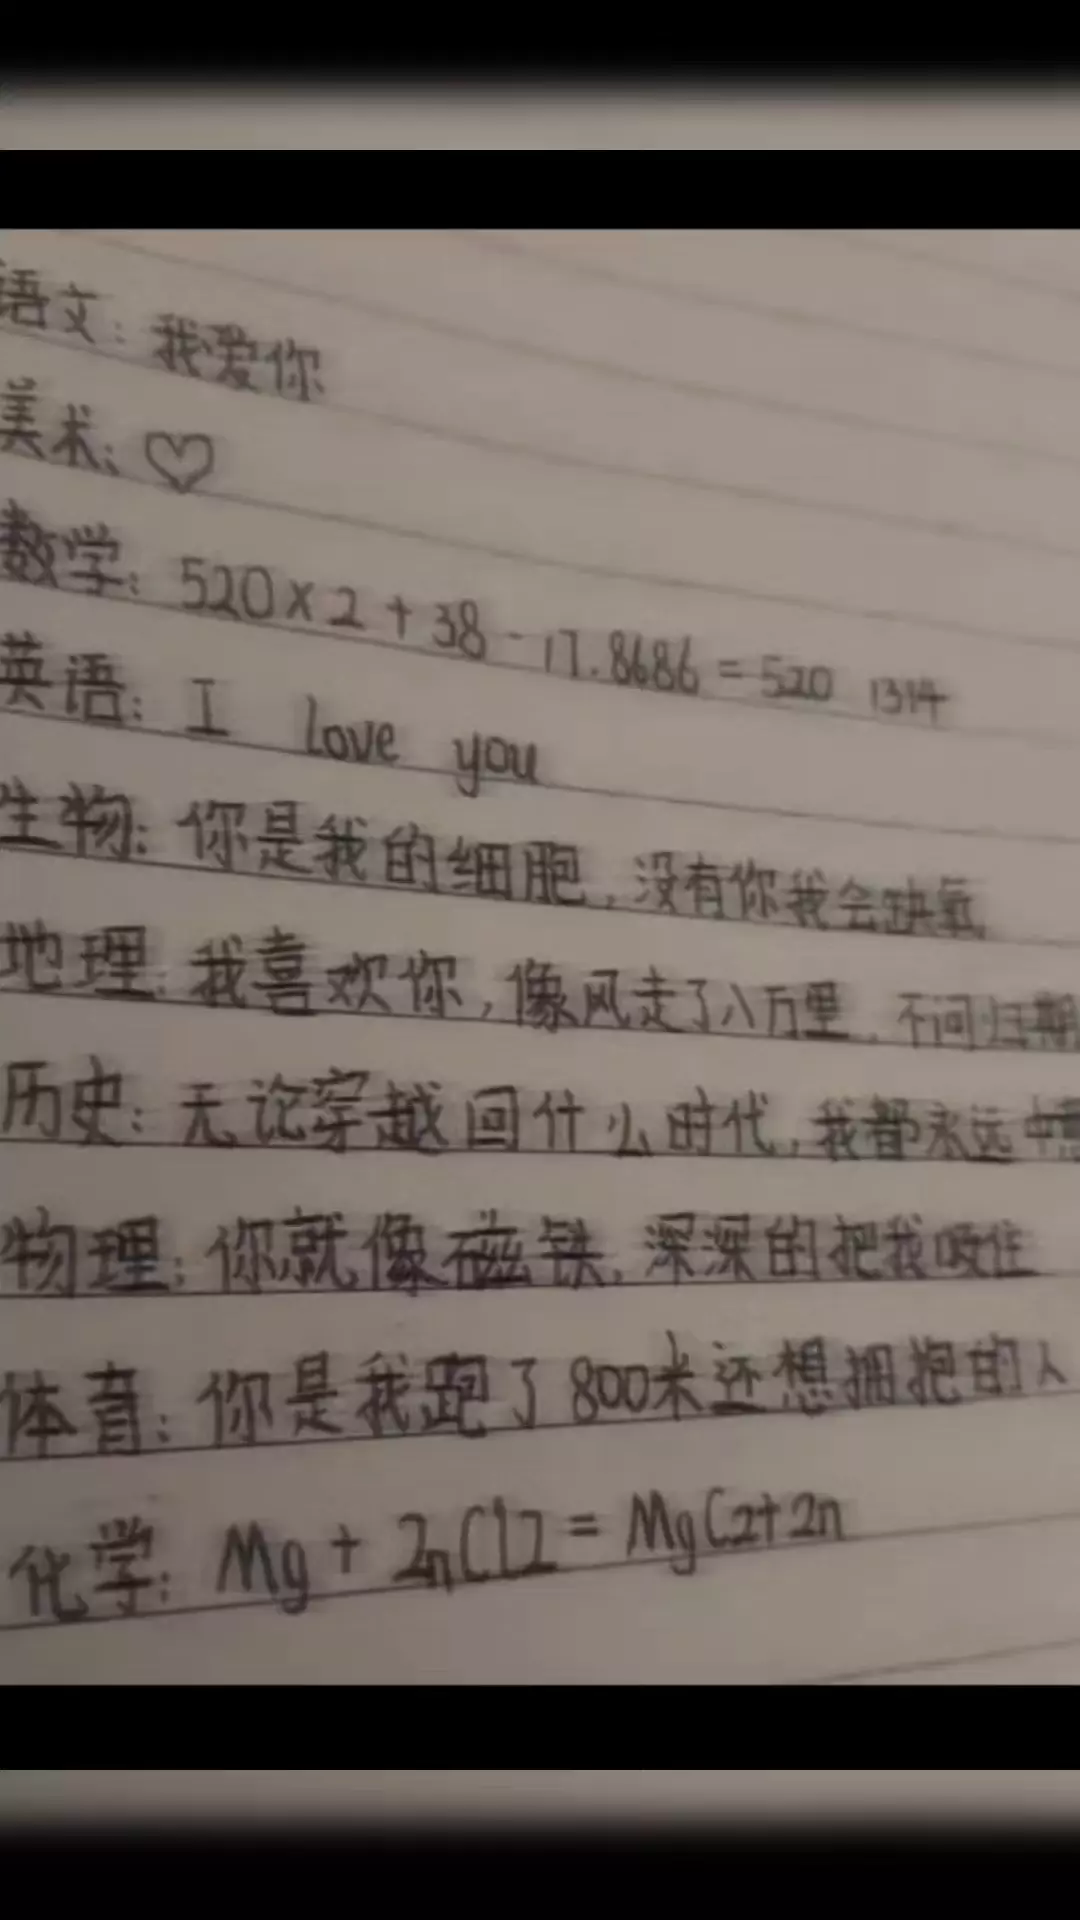 语文：我爱你
美术：♡
数学：520×2+38-17.8686=520 1314
英语：I love you
生物：你是我的细胞，没有你我会缺氧
地理：我喜欢你，像风走了八万里，不问归期
历史：无论穿越回什么时代，我都永远
物理：你就像磁铁，深深的把我吸住
体育：你是我跑了800米还想拥抱的人
化学：Mg+ZnCl2=MgC2+Zn